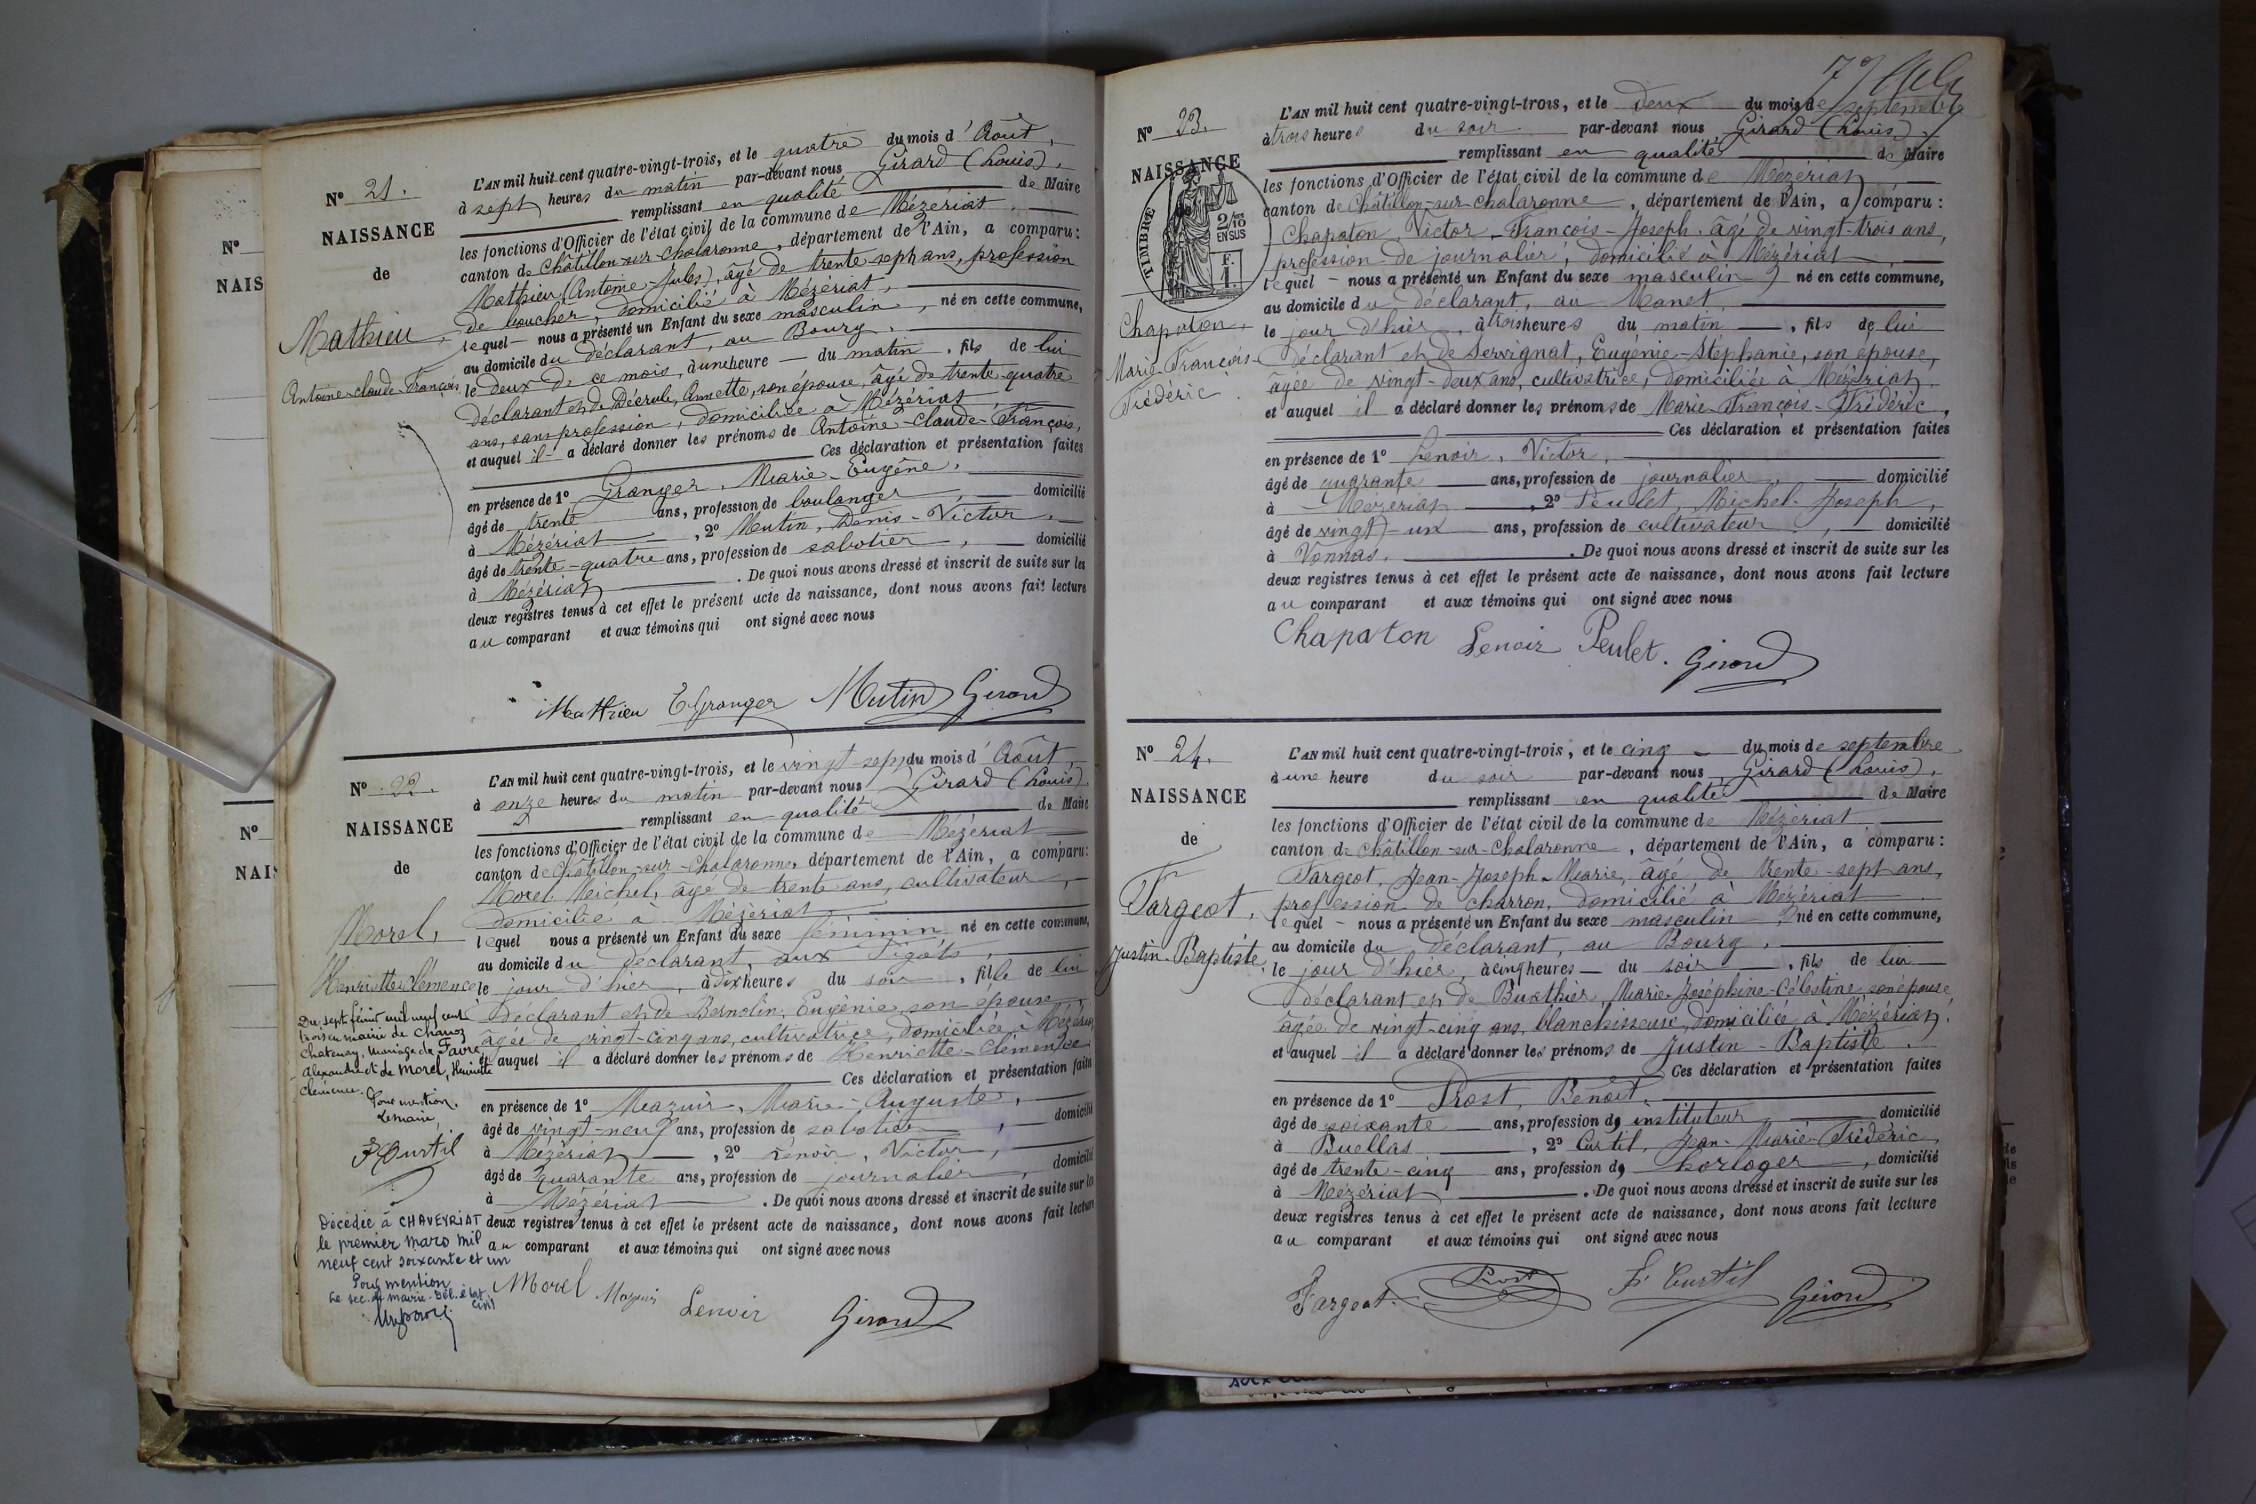 N° 21.
NAISSANCE
de
Mathieu,
Antoine-Claude-François
L'AN mil huit cent quatre-vingt-trois, et le quatre du mois d'Août,
à sept heures du matin par-devant nous Girard (Louis),
remplissant en qualité de Maire
les fonctions d'Officier de l'état civil de la commune de Mézériat,
canton de Châtillon-sur-Chalaronne, département de l'Ain, a comparu:
Mathieu (Antoine-Jules), âgé de trente sept ans, profession
de boucher, domicilié à Mézériat,
lequel nous a présenté un Enfant du sexe masculin, né en cette commune,
au domicile du déclarant, au Bourg,
le deux de ce mois, à une heure du matin, fils de lui
déclarant et de Decrule, Annette, son épouse, âgée de trente-quatre
ans, sans profession, domiciliée à Mézériat
et auquel il a déclaré donner les prénoms de Antoine-Claude-François,
Ces déclaration et présentation faites
en présence de 1° Granger, Marie-Eugène,
âgé de trente ans, profession de boulanger, domicilié
à Mézériat, 2° Mutin, Denis-Victor,
âgé de trente-quatre ans, profession de sabotier, domicilié
à Mézériat. De quoi nous avons dressé et inscrit de suite sur les
deux registres tenus à cet effet le présent acte de naissance, dont nous avons fait lecture
au comparant et aux témoins qui ont signé avec nous
Mathieu E Granger Mutin Girard
N° 22.
NAISSANCE
de
Morel,
Henriette Clémence
L'AN mil huit cent quatre-vingt-trois, et le vingt-sept du mois d'Août,
à onze heures du matin par-devant nous Girard (Louis)
remplissant en qualité de Maire
les fonctions d'Officier de l'état civil de la commune de Mézériat
canton de Châtillon-sur-Chalaronne, département de l'Ain, a comparu:
Morel Michel, âgé de trente ans, cultivateur,
domicilié à Mézériat
lequel nous a présenté un Enfant du sexe féminin né en cette commune,
au domicile du déclarant, aux
le jour d'hier, à dix heures du soir, fille de lui
déclarant et de Bernolin, Eugénie, son épouse,
âgée de vingt-cinq ans, cultivatrice, domiciliée à Mézériat
et auquel il a déclaré donner les prénoms de Henriette-Clémence
Ces déclaration et présentation faites
en présence de 1° Mazuir, Marie-Auguste,
âgé de vingt-neuf ans, profession de sabotier, domicilié
à Mézériat, 2° Lenoir, Victor,
âgé de quarante ans, profession de journalier, domicilié
à Mézériat. De quoi nous avons dressé et inscrit de suite sur les
deux registres tenus à cet effet le présent acte de naissance, dont nous avons fait lecture
au comparant et aux témoins qui ont signé avec nous
Morel Mazuir Lenoir Girard
Du sept février mil neuf cent
trois en mairie de Chanoz
Chatenay, mariage de Favre
Alexandre et de Morel, Henriette
Clémence.
Pour mention,
Le maire,
F Curtil
Décédée à CHAVEYRIAT
le premier mars mil
neuf cent soixante et un
Pour mention
Le sec. de mairie. Dél. état
civil
N° 23.
NAISSANCE
de
TIMBRE
2/10
EN SUS
F.
1
Chapoton,
Marie-François-
Frédéric
L'AN mil huit cent quatre-vingt-trois, et le deux du mois de septembre
à trois heures du soir par-devant nous Girard (Louis),
remplissant en qualité de Maire
les fonctions d'Officier de l'état civil de la commune de Mézériat
canton de Châtillon-sur-Chalaronne, département de l'Ain, a comparu:
Chapaton, Victor-François-Joseph, âgé de vingt-trois ans,
profession de journalier, domicilié à Mézériat
lequel nous a présenté un Enfant du sexe masculin, né en cette commune,
au domicile du déclarant, au Manet,
le jour d'hier, à trois heures du matin, fils de lui
déclarant et de Servignat, Eugénie-Stéphanie, son épouse,
âgée de vingt-deux ans, cultivatrice, domiciliée à Mézériat.
et auquel il a déclaré donner les prénoms de Marie-François-Frédéric,
Ces déclaration et présentation faites
en présence de 1° Lenoir, Victor,
âgé de quarante ans, profession de journalier, domicilié
à Mézériat, 2° Peulet, Michel-Joseph,
âgé de vingt-un ans, profession de cultivateur, domicilié
à Vonnas. De quoi nous avons dressé et inscrit de suite sur les
deux registres tenus à cet effet le présent acte de naissance, dont nous avons fait lecture
au comparant et aux témoins qui ont signé avec nous
Chapaton Lenoir Peulet. Girard
N° 24.
NAISSANCE
de
Fargeot,
Justin-Baptiste,
L'AN mil huit cent quatre-vingt-trois, et le cinq du mois de septembre
à une heure du soir par-devant nous Girard (Louis),
remplissant en qualité de Maire
les fonctions d'Officier de l'état civil de la commune de Mézériat
canton de Châtillon-sur-Chalaronne, département de l'Ain, a comparu:
Fargeot, Jean-Joseph-Marie, âgé de trente-sept ans,
profession de charron, domicilié à Mézériat
lequel nous a présenté un Enfant du sexe masculin, né en cette commune,
au domicile du déclarant, au Bourg,
le jour d'hier, à cinq heures du soir, fils de lui
déclarant et de Buathier, Marie-Joséphine-Célestine, son épouse
âgée de vingt-cinq ans, blanchisseuse, domiciliée à Mézériat.
et auquel il a déclaré donner les prénoms de Justin-Baptiste.
Ces déclaration et présentation faites
en présence de 1° Prost, Benoit,
âgé de soixante ans, profession d, instituteur domicilié
à Buellas, 2° Curtil, Jean-Marie-Frédéric,
âgé de trente-cinq ans, profession d, horloger, domicilié
à Mézériat. De quoi nous avons dressé et inscrit de suite sur les
deux registres tenus à cet effet le présent acte de naissance, dont nous avons fait lecture
au comparant et aux témoins qui ont signé avec nous
Fargeot. Prost F. Curtil Girard
N°
NAIS
N°
NAIS